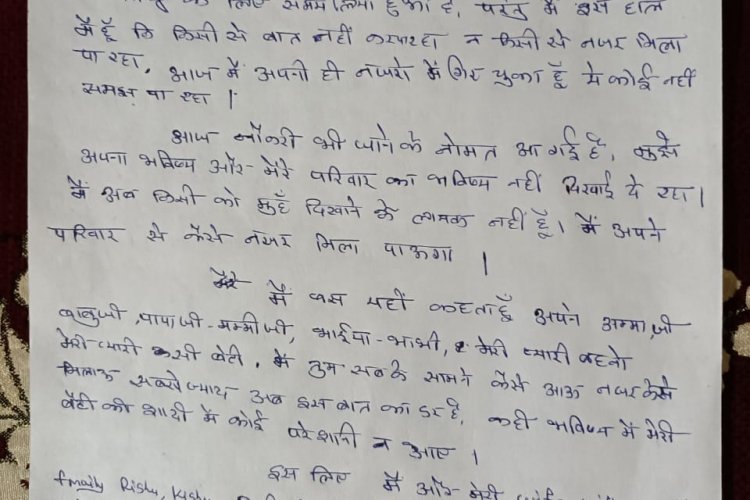 के लिए समय लिया हुआ है, परंतु मैं इस हाल
में हूँ कि किसी से बात नहीं कर पा रहा न किसी से नजर मिला
पा रहा, आज मैं अपनी ही नजरो में गिर चुका हूँ ये कोई नहीं
समझ पा रहा ।
आज नौकरी भी जाने के नोमत आ गई है, मुझे
अपना भविष्य और मेरे परिवार का भविष्य नहीं दिखाई दे रहा ।
मैं अब किसी को मुहँ दिखाने के लायक नहीं हूँ । मैं अपने
परिवार से कैसे नजर मिला पाऊगा ।
मैं बस यहीं कहता हूँ अपने अम्मा जी
बाबुजी, पापाजी - मम्मीजी, भाईया - भाभी, मेरी प्यारी बहनो
मेरी प्यारी सी बेटी, मैं तुम सबके सामने कैसे आऊ नजर कैसे
मिलाऊ सबसे ज्यादा अब इस बात का डर है, कही भविष्य में मेरी
बेटी की शादी में कोई परेशानी न आए ।
इस लिए मैं और मेरी
family Rishu,